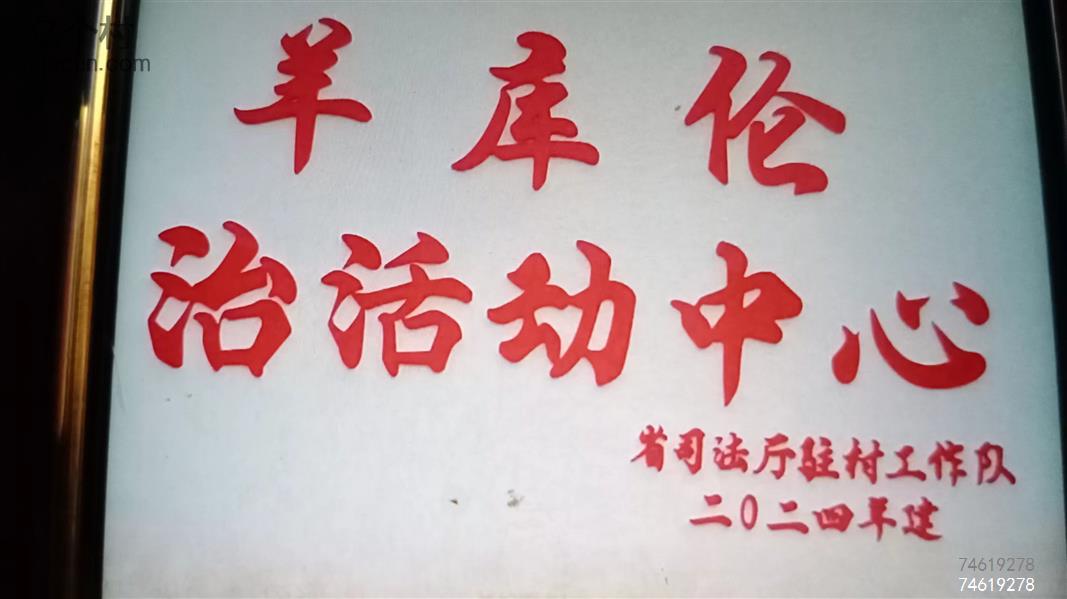 羊库伦
治活动中心
省司法厅驻村工作队
二〇二四年建
74619278
74619278